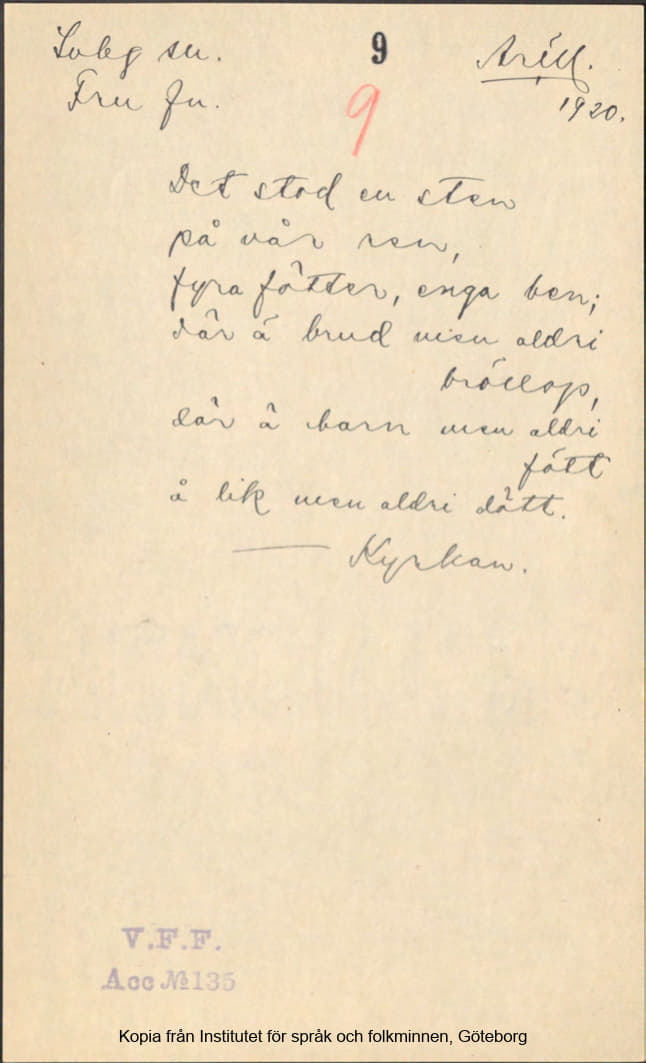 Solbg sn.
9
Arill.
Fru fn.
9
1920.
Det stod en sten
på vår ren,
fyra fötter, enga ben;
där ä brud men aldri
bröllop,
där ä barn men aldri
fött
å lik men aldri dött.
— Kyrkan.
V.F.F.
Acc №135
Kopia från Institutet för språk och folkminnen, Göteborg